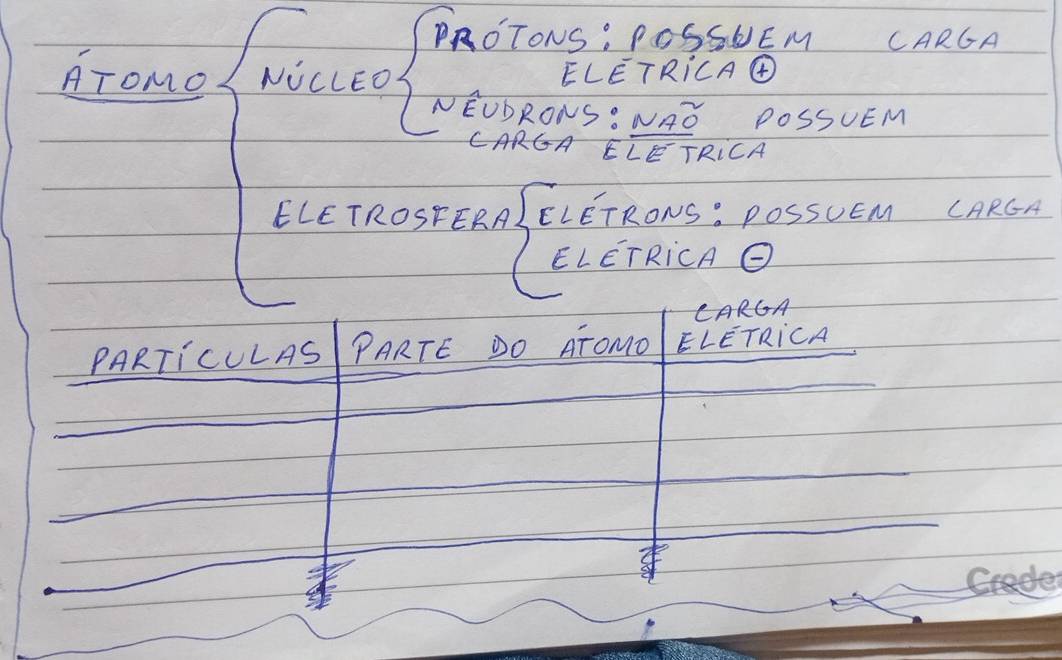 PRÓTONS: POSSUEM CARGA
ÁTOMO NÚCLEO ELÉTRICA +
NÊUDRONS: NAÕ POSSUEM
CARGA ELÉTRICA
ELETROSFERA ELÉTRONS: POSSUEM CARGA
ELÉTRICA -
PARTÍCULAS PARTE DO ÁTOMO CARGA ELÉTRICA